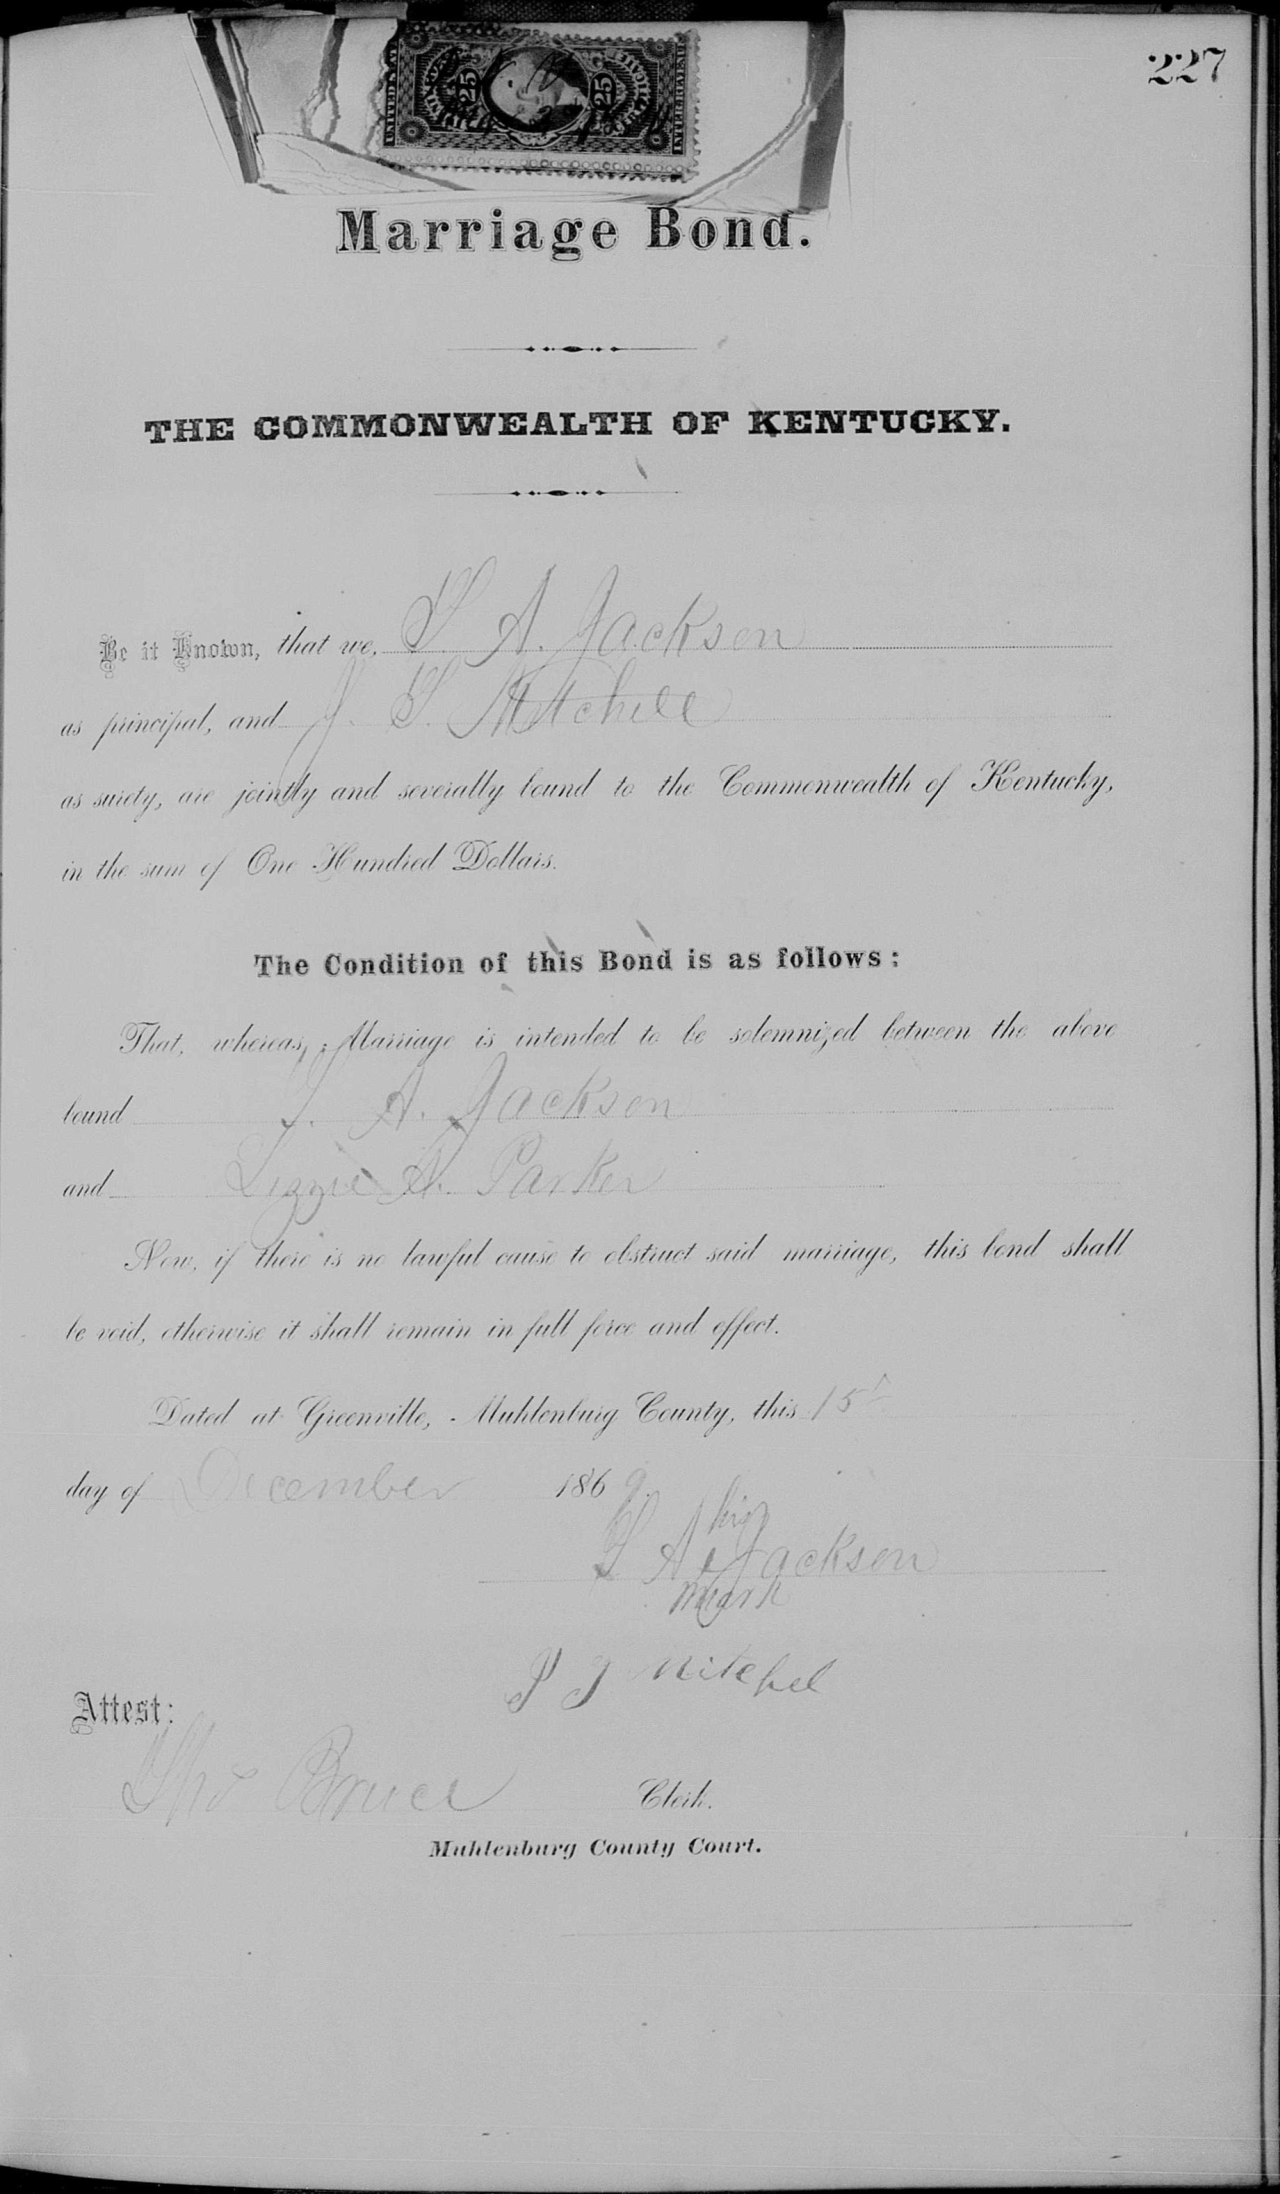 227
UNITED STATES
25 25
INTER. REVENUE
Marriage Bond.
THE COMMONWEALTH OF KENTUCKY.
Be it Known, that we, T. A. Jackson
as principal, and J. T. Mitchell
as surety, are jointly and severally bound to the Commonwealth of Kentucky,
in the sum of One Hundred Dollars.
The Condition of this Bond is as follows:
That, whereas, Marriage is intended to be solemnized between the above
bound T. A. Jackson
and Lizzie A. Parker
Now, if there is no lawful cause to obstruct said marriage, this bond shall
be void, otherwise it shall remain in full force and effect.
Dated at Greenville, Muhlenburg County, this 15th
day of December 1869.
his
T A x Jackson
mark
J T Mitchel
Attest:
Tho Bruce Clerk.
Muhlenburg County Court.